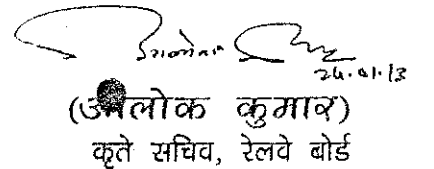 24.01.13
(आलोक कुमार)
कृते सचिव, रेलवे बोर्ड